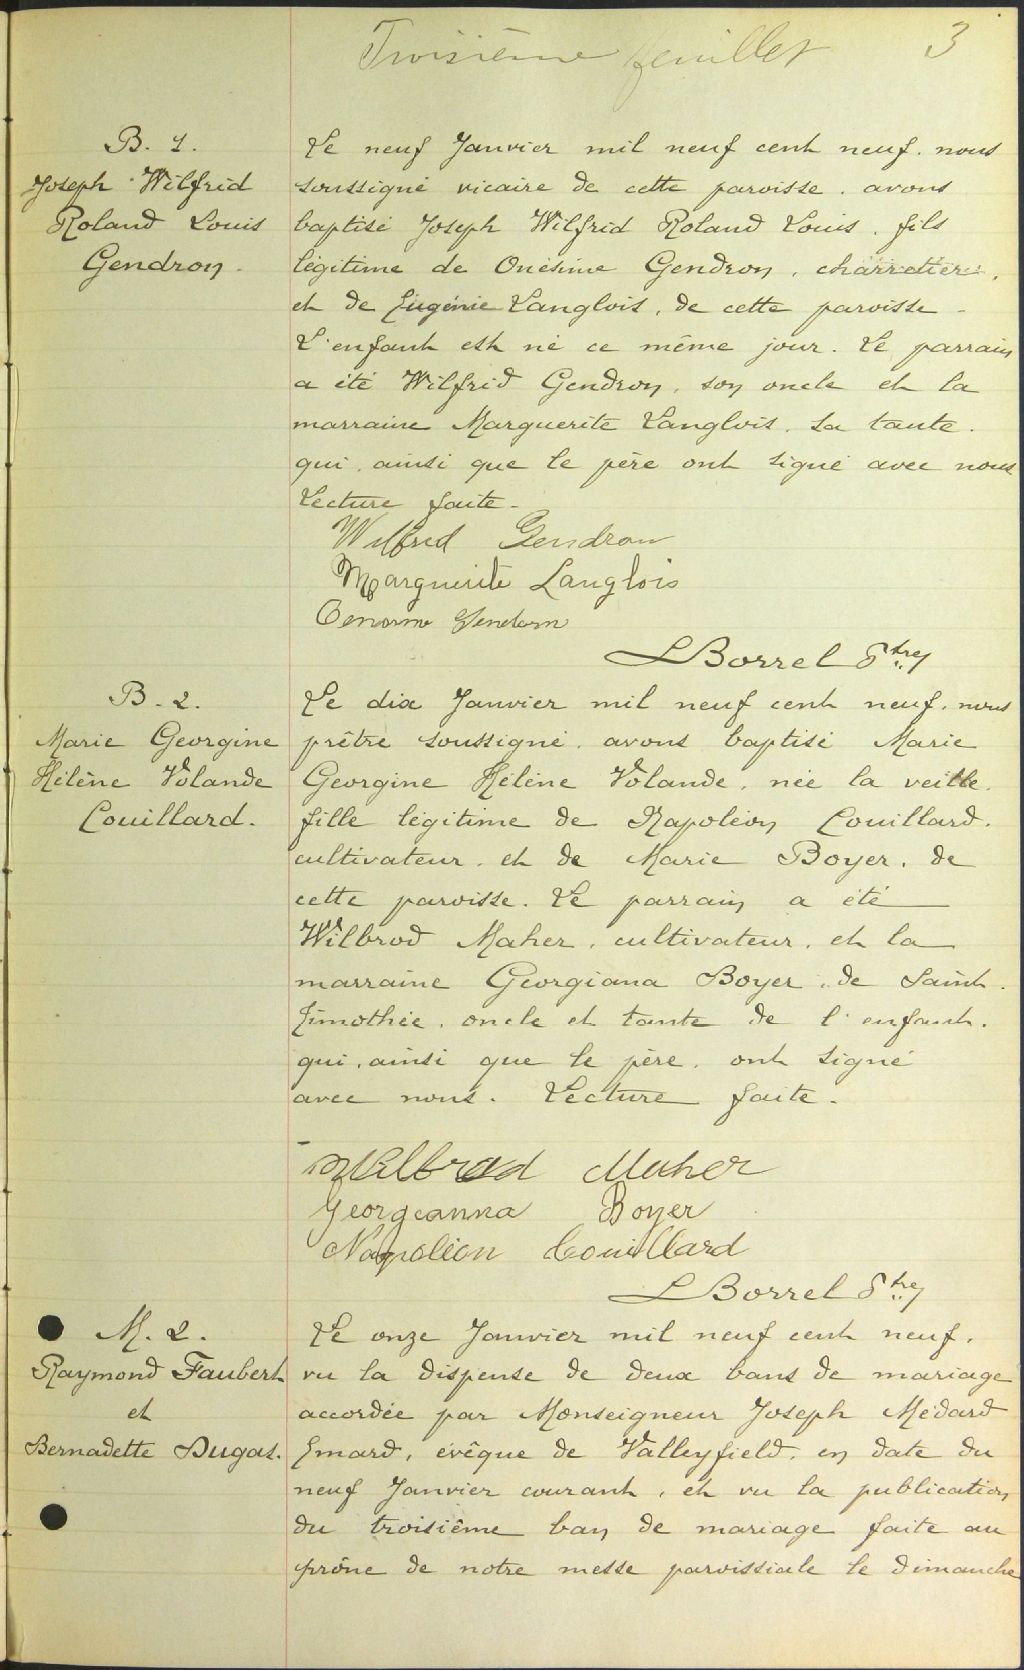 Troisième feuillet 3
B. 1.
Joseph Wilfrid
Roland Louis
Gendron.
Le neuf Janvier mil neuf cent neuf. nous
soussigné vicaire de cette paroisse. avons
baptisé Joseph Wilfrid Roland Louis. fils
légitime de Onésime Gendron, charretier,
et de Eugénie Langlois, de cette paroisse -
L'enfant est né ce même jour. Le parrain
a été Wilfrid Gendron, son oncle et la
marraine Marguerite Langlois. sa tante.
qui, ainsi que le père ont signé avec nous
Lecture faite -
Wilfrid Gendron
Marguerite Langlois
L Borrel Ptre
B. 2.
Marie Georgine
Hélène Yolande
Couillard.
Le dix Janvier mil neuf cent neuf, nous
prêtre soussigné, avons baptisé Marie
Georgine Hélène Yolande, née la veille.
fille légitime de Napoléon Couillard.
cultivateur, et de Marie Boyer, de
cette paroisse. Le parrain a été
Wilbrod Maher, cultivateur, et la
marraine Georgiana Boyer, de Saint.
Timothée, oncle et tante de l'enfant.
qui, ainsi que le père, ont signé
avec nous. Lecture faite -
Wilbrod Maher
Georgeanna Boyer
Napoléon Couillard
L Borrel Ptre
M. 2.
Raymond Faubert
et
Bernadette Dugas.
Le onze Janvier mil neuf cent neuf,
vu la dispense de deux bans de mariage
accordée par Monseigneur Joseph Médard
Emard, evêque de Valleyfield, en date du
neuf Janvier courant, et vu la publication
du troisième ban de mariage faite au
prône de notre messe paroissiale le dimanche